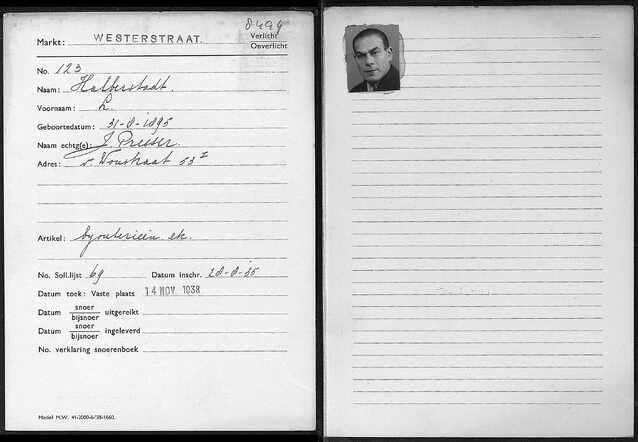 8499
Markt: WESTERSTRAAT.
Verlicht
Onverlicht
No. 123
Naam: Halberstadt.
Voornaam: L.
Geboortedatum: 31-8-1895
Naam echtg(e): J. Presser.
Adres: v. Woustraat 53 I
Artikel: byouterieën ek.
No. Soll.lijst 69 Datum inschr. 28-8-35
Datum toek: Vaste plaats 14 NOV. 1938
Datum snoer/bijsnoer uitgereikt
Datum snoer/bijsnoer ingeleverd
No. verklaring snoerenboek
Model M.W. 41-2000-6/'38-1660.